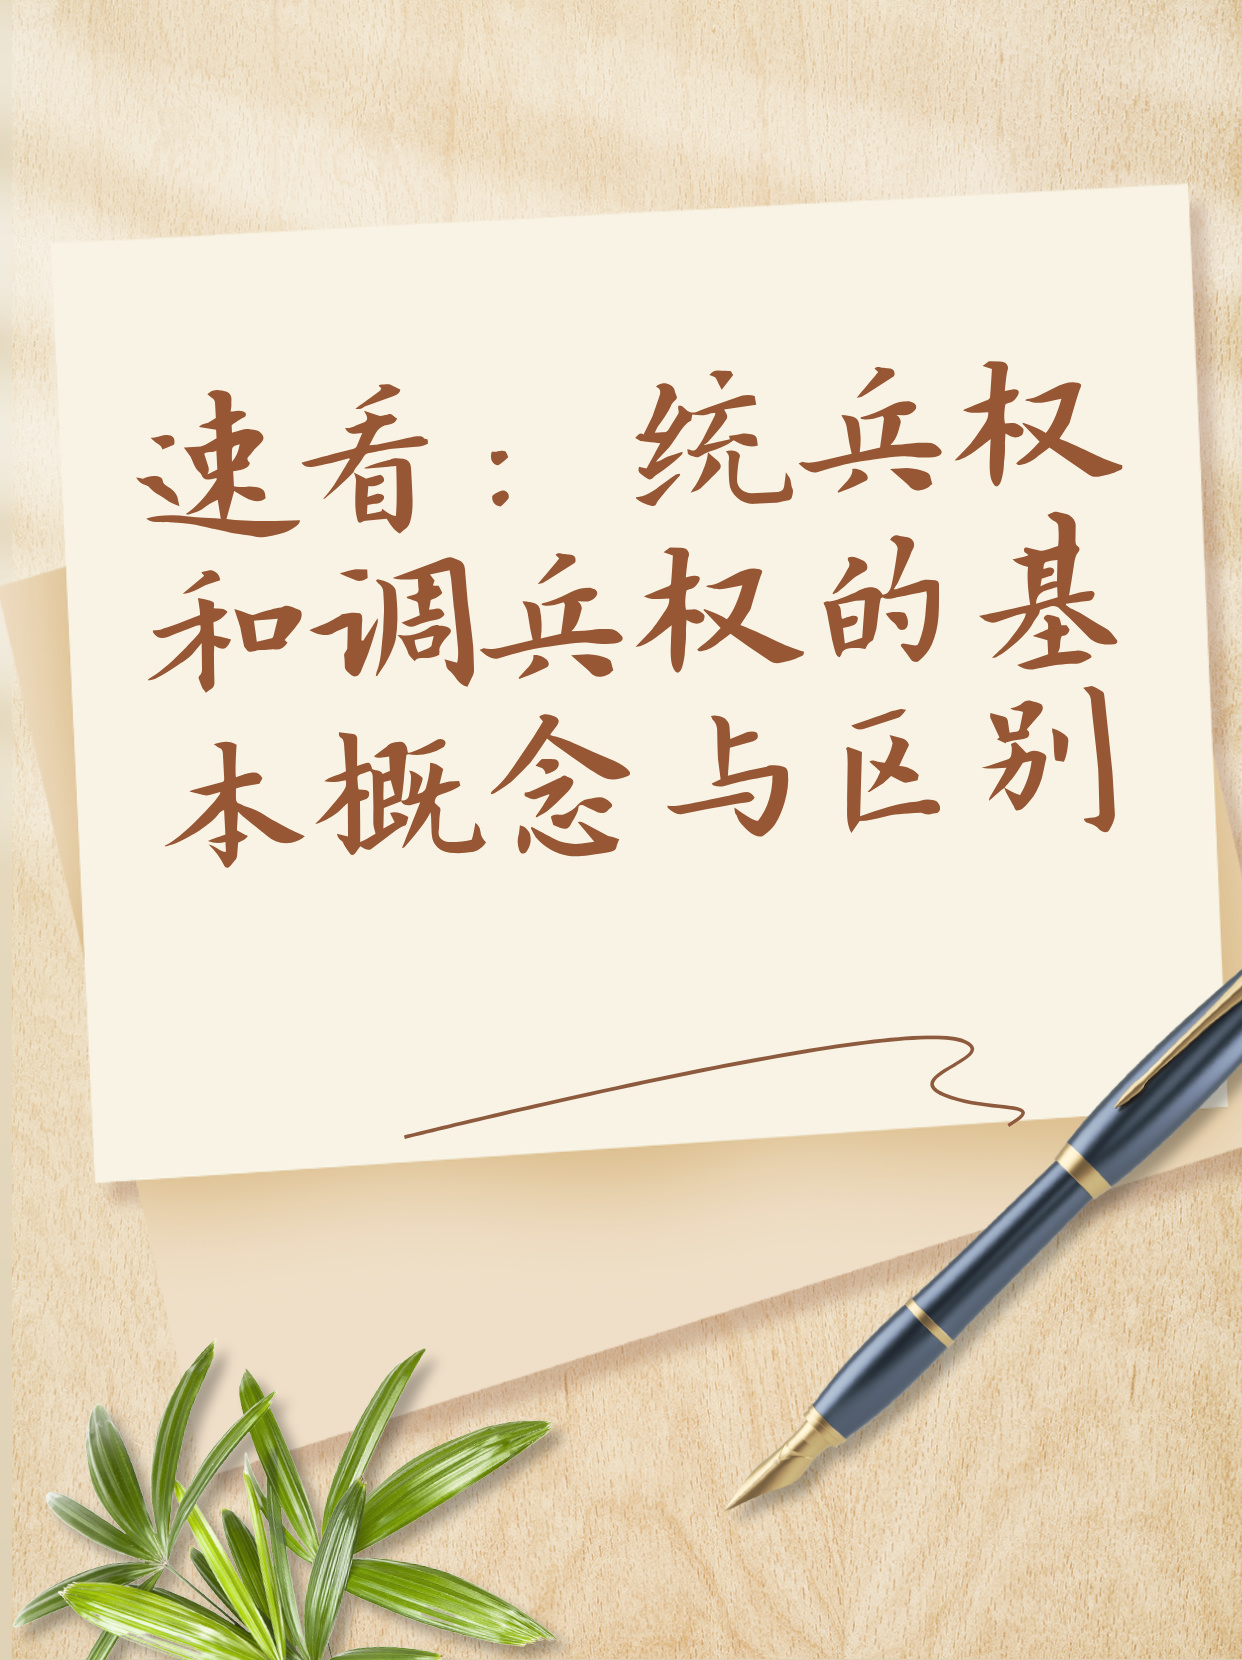 速看： 统兵权
和调兵权的基
本概念与区别